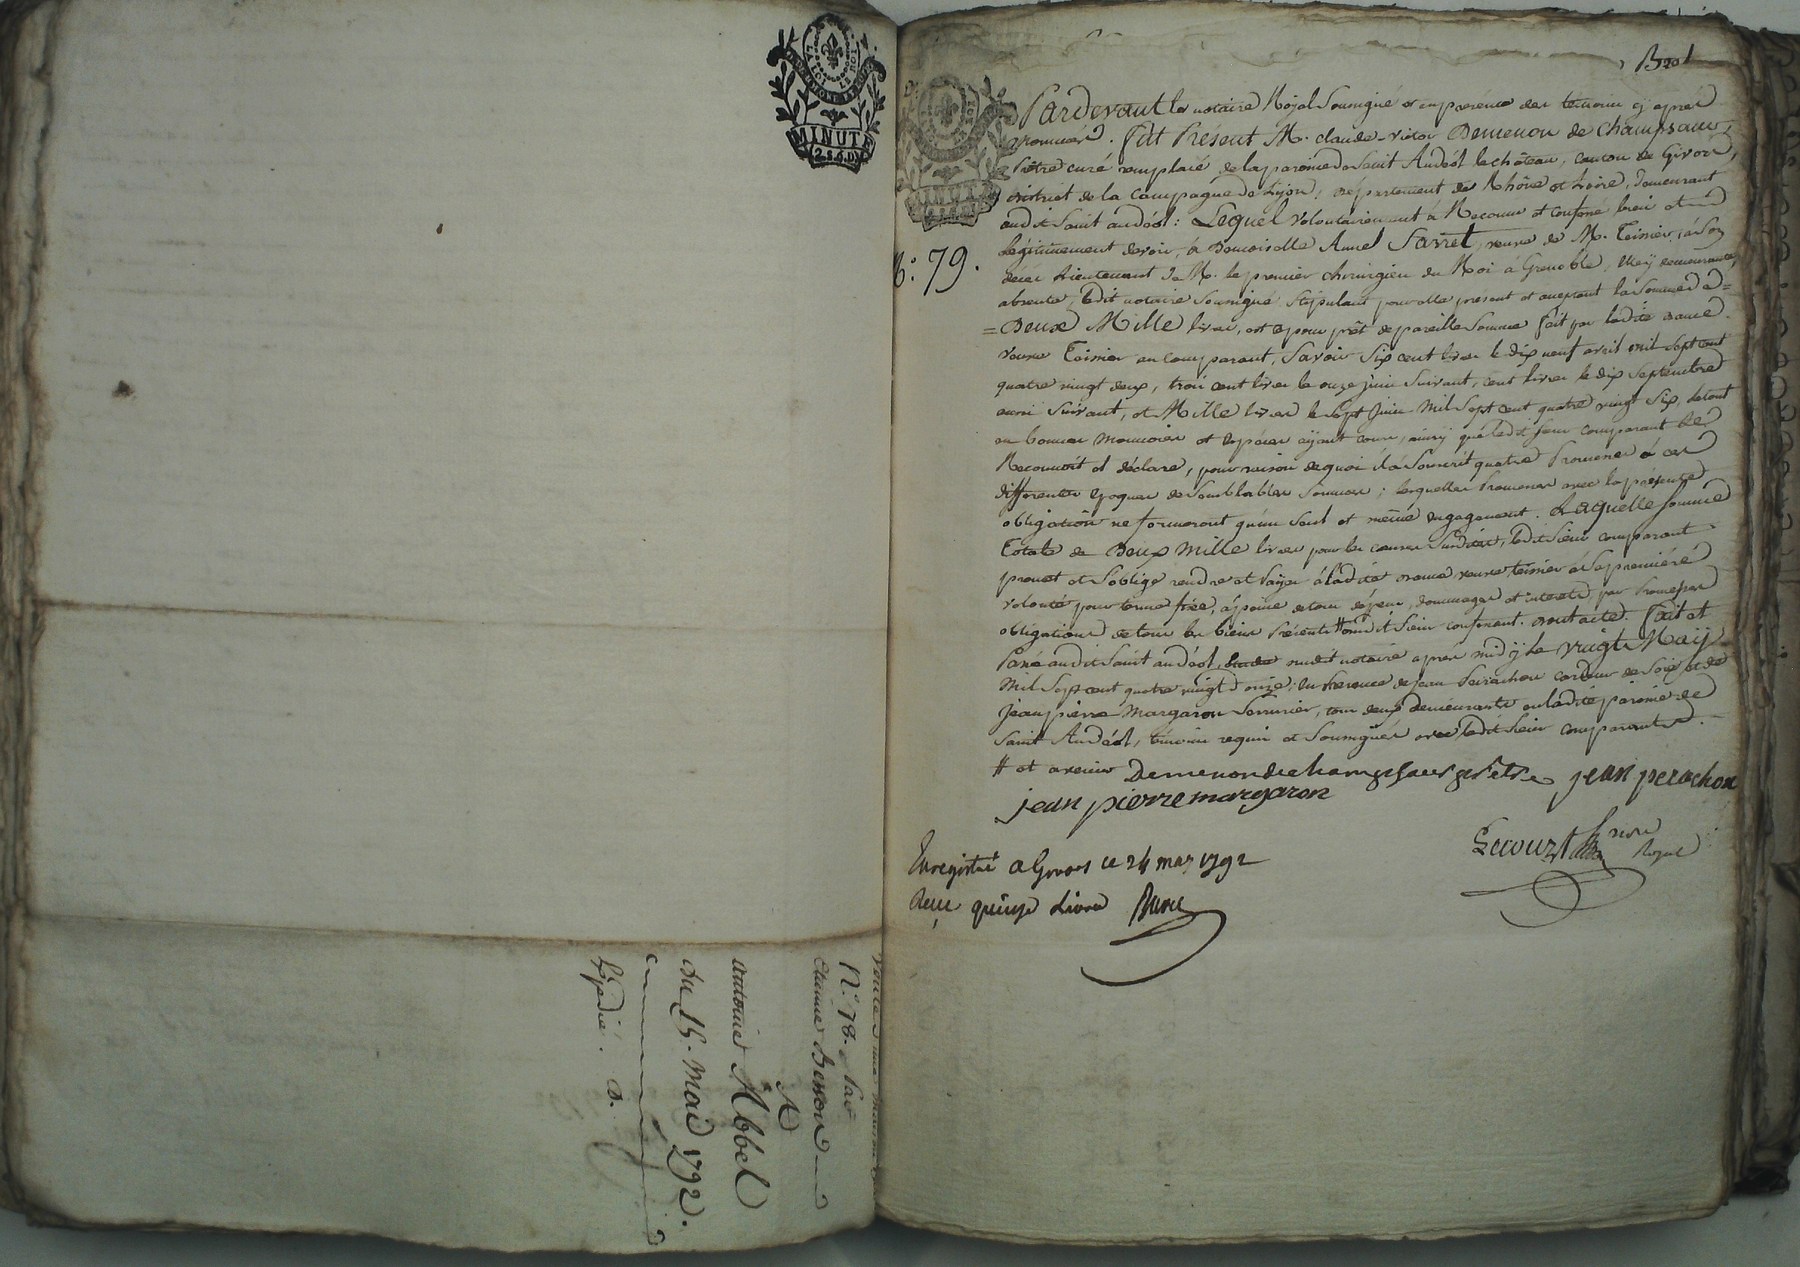 LA LOI ET LE ROI
MINUTE
2.s.6.D.
N.º 78.
Etienne Besson
A
antoine Abbel
du 15. Mai 1792.
Expédié.
Pardevant le notaire Royal Soussigné et en présence des témoins cy après
nommés. Fut Présent M. claude-victor Demenon de Champsaur,
Prêtre curé remplacé de la paroisse de Saint Andéol le château, canton de Givors,
district de la Campagne de Lyon, département de Rhône et Loire, demeurant
audit Saint andéol: Lequel volontairement à Reconnu et confessé bien et
Légitimement devoir, à Demoiselle Anne Sarret, veuve de M. Teissier, à Son
décès Lieutenant de M. le premier chirurgien du Roi à Grenoble, Mery demeurante,
absente, ledit notaire Soussigné Stipulant pour elle présent et acceptant la Somme de
Deux Mille livres, et ce pour prêt de pareille Somme fait par ladite Dame
veuve Teissier au comparant, Savoir Six cent livres le dix neuf avril mil sept cent
quatre vingt deux, trois cent livres le onze juin Suivant, cent livres le dix Septembre
aussi Suivant, et Mille livres le Sept Juin Mil Sept cent quatre vingt Six, le tout
en bonnes monnoies et espèces ayant cours, ainsy que ledit Sieur comparant le
Reconnoit et déclare, pour raison de quoi il a Souscrit quatre Promesses à ces
differentes époques de Semblables Sommes; lesquelles Promesses avec la présente
obligation ne formeront qu'un Seul et même engagement. Laquelle Somme
Totale de Deux Mille livres pour les causes Susdites, ledit Sieur comparant
promet et S'oblige rendre et Payer à ladite Dame veuve teissier à Sa première
volonté pour terme fixe, à peine de tous dépens, dommages et interets, par Promesses
obligations de tous les biens Présents # audit Sieur confessant. dont acte. Fait et
Passé audit Saint andéol, Etude dudit notaire après midy le vingt Maÿ
Mil Sept cent quatre vingt onze, En Présence de Jean Perrachon cordeur de Soie et de
Jean pierre Margaron Serrurier, tous deux demeurants en ladite paroisse de
Saint Andéol, témoins requis et Soussignés avec ledit Sieur comparant.
# et avenir Demenon de champsaur prêtre jean perachon
jean pierre margaron
N.º 79.
nore
Royal
Enregistré a Givors ce 24 may 1792
Reçu quinze Livres